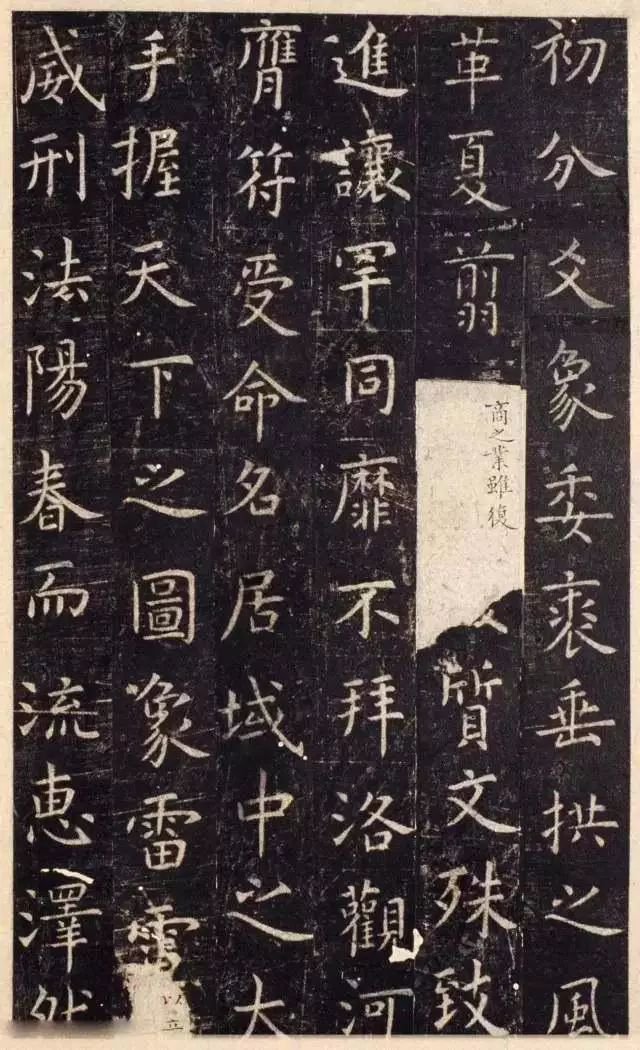 初分爻象委裘垂拱之風
革夏翦商之業雖復質文殊致
進讓罕同靡不拜洛觀河
膺符受命名居域中之大
手握天下之圖象雷電以立
威刑法陽春而流恵澤然